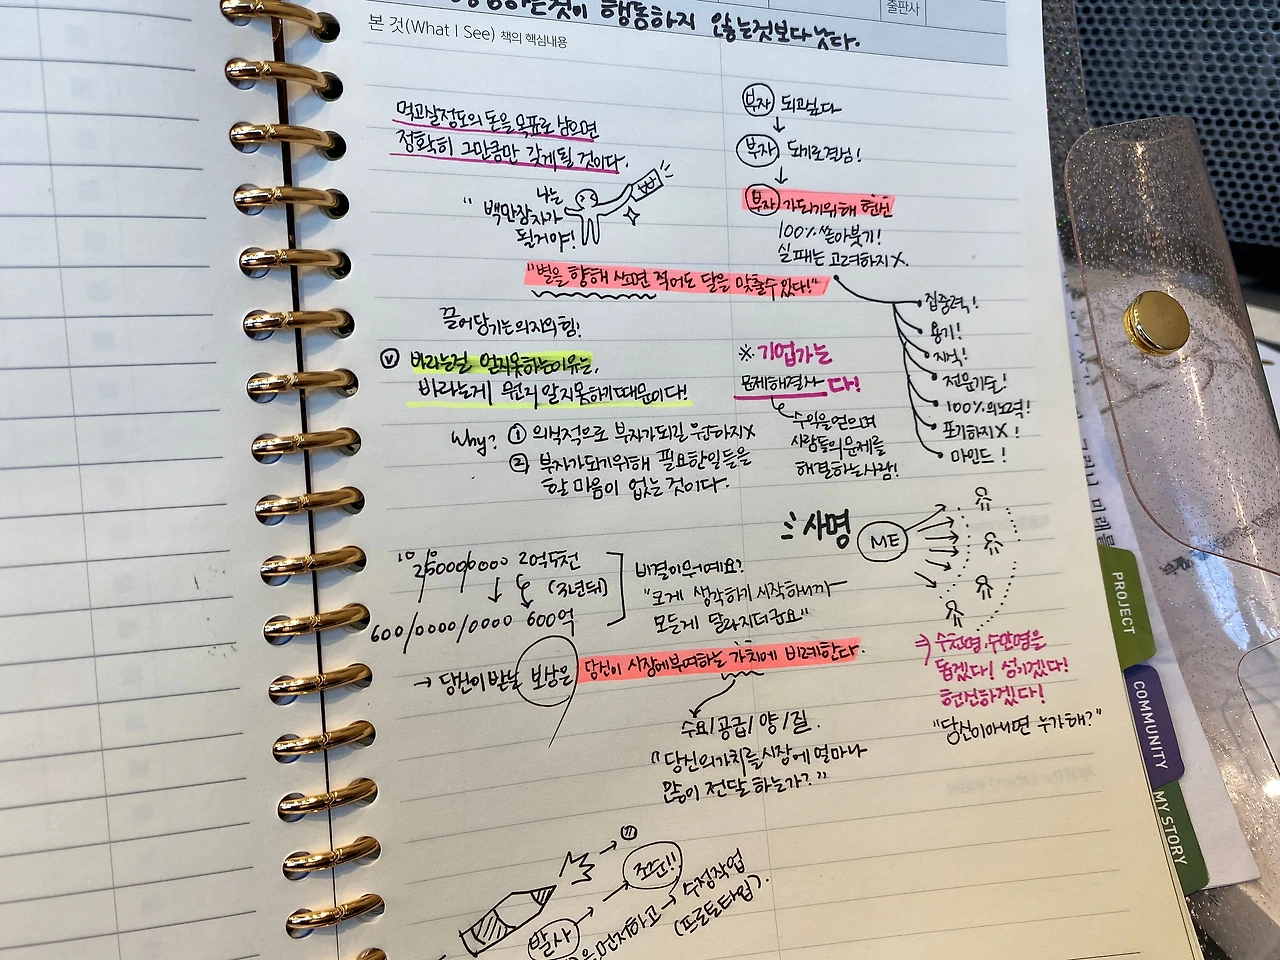 것이 행동하지 않는것보다 낫다.
출판사
본 것(What I See) 책의 핵심내용
먹고살정도의 돈을 목표로 삼으면
정확히 그만큼만 갖게될 것이다.
나는
"백만장자가
될거야!
부자 되고싶다
부자 되기로결심!
부자 가되기위해 헌신
100% 쏟아붓기!
실패는 고려하지X.
"별을 향해 쏘면 적어도 달을 맞출수있다!"
집중력!
용기!
지식!
전문기도!
100%의노력!
포기하지X!
마인드!
끌어당기는의지의힘!
ⓥ 바라는걸 얻지못하는이유는,
바라는게 뭔지 알지못하기때문이다!
Why? ① 의식적으로 부자가되길 원하지X
② 부자가되기위해 필요한일들을
할 마음이 없는 것이다.
※ 기업가는
문제해결사다!
수익을얻으며
사람들의문제를
해결하는사람!
사명
ME
⇒ 수천명, 수만명을
돕겠다! 섬기겠다!
헌신하겠다!
"당신이아니면 누가해?"
2억5천
(3년뒤)
600/0000/0000 600억
비결이뭐예요?
"크게 생각하기 시작하니까
모든게 달라지더군요"
→ 당신이받는 보상은 당신이 시장에부여하는 가치에 비례한다.
수요/공급/양/질.
"당신의가치를시장에 얼마나
많이 전달하는가?"
조준!!
발사
먼저하고 → 수정작업
(프로토타입).
PROJECT
COMMUNITY
MY STORY